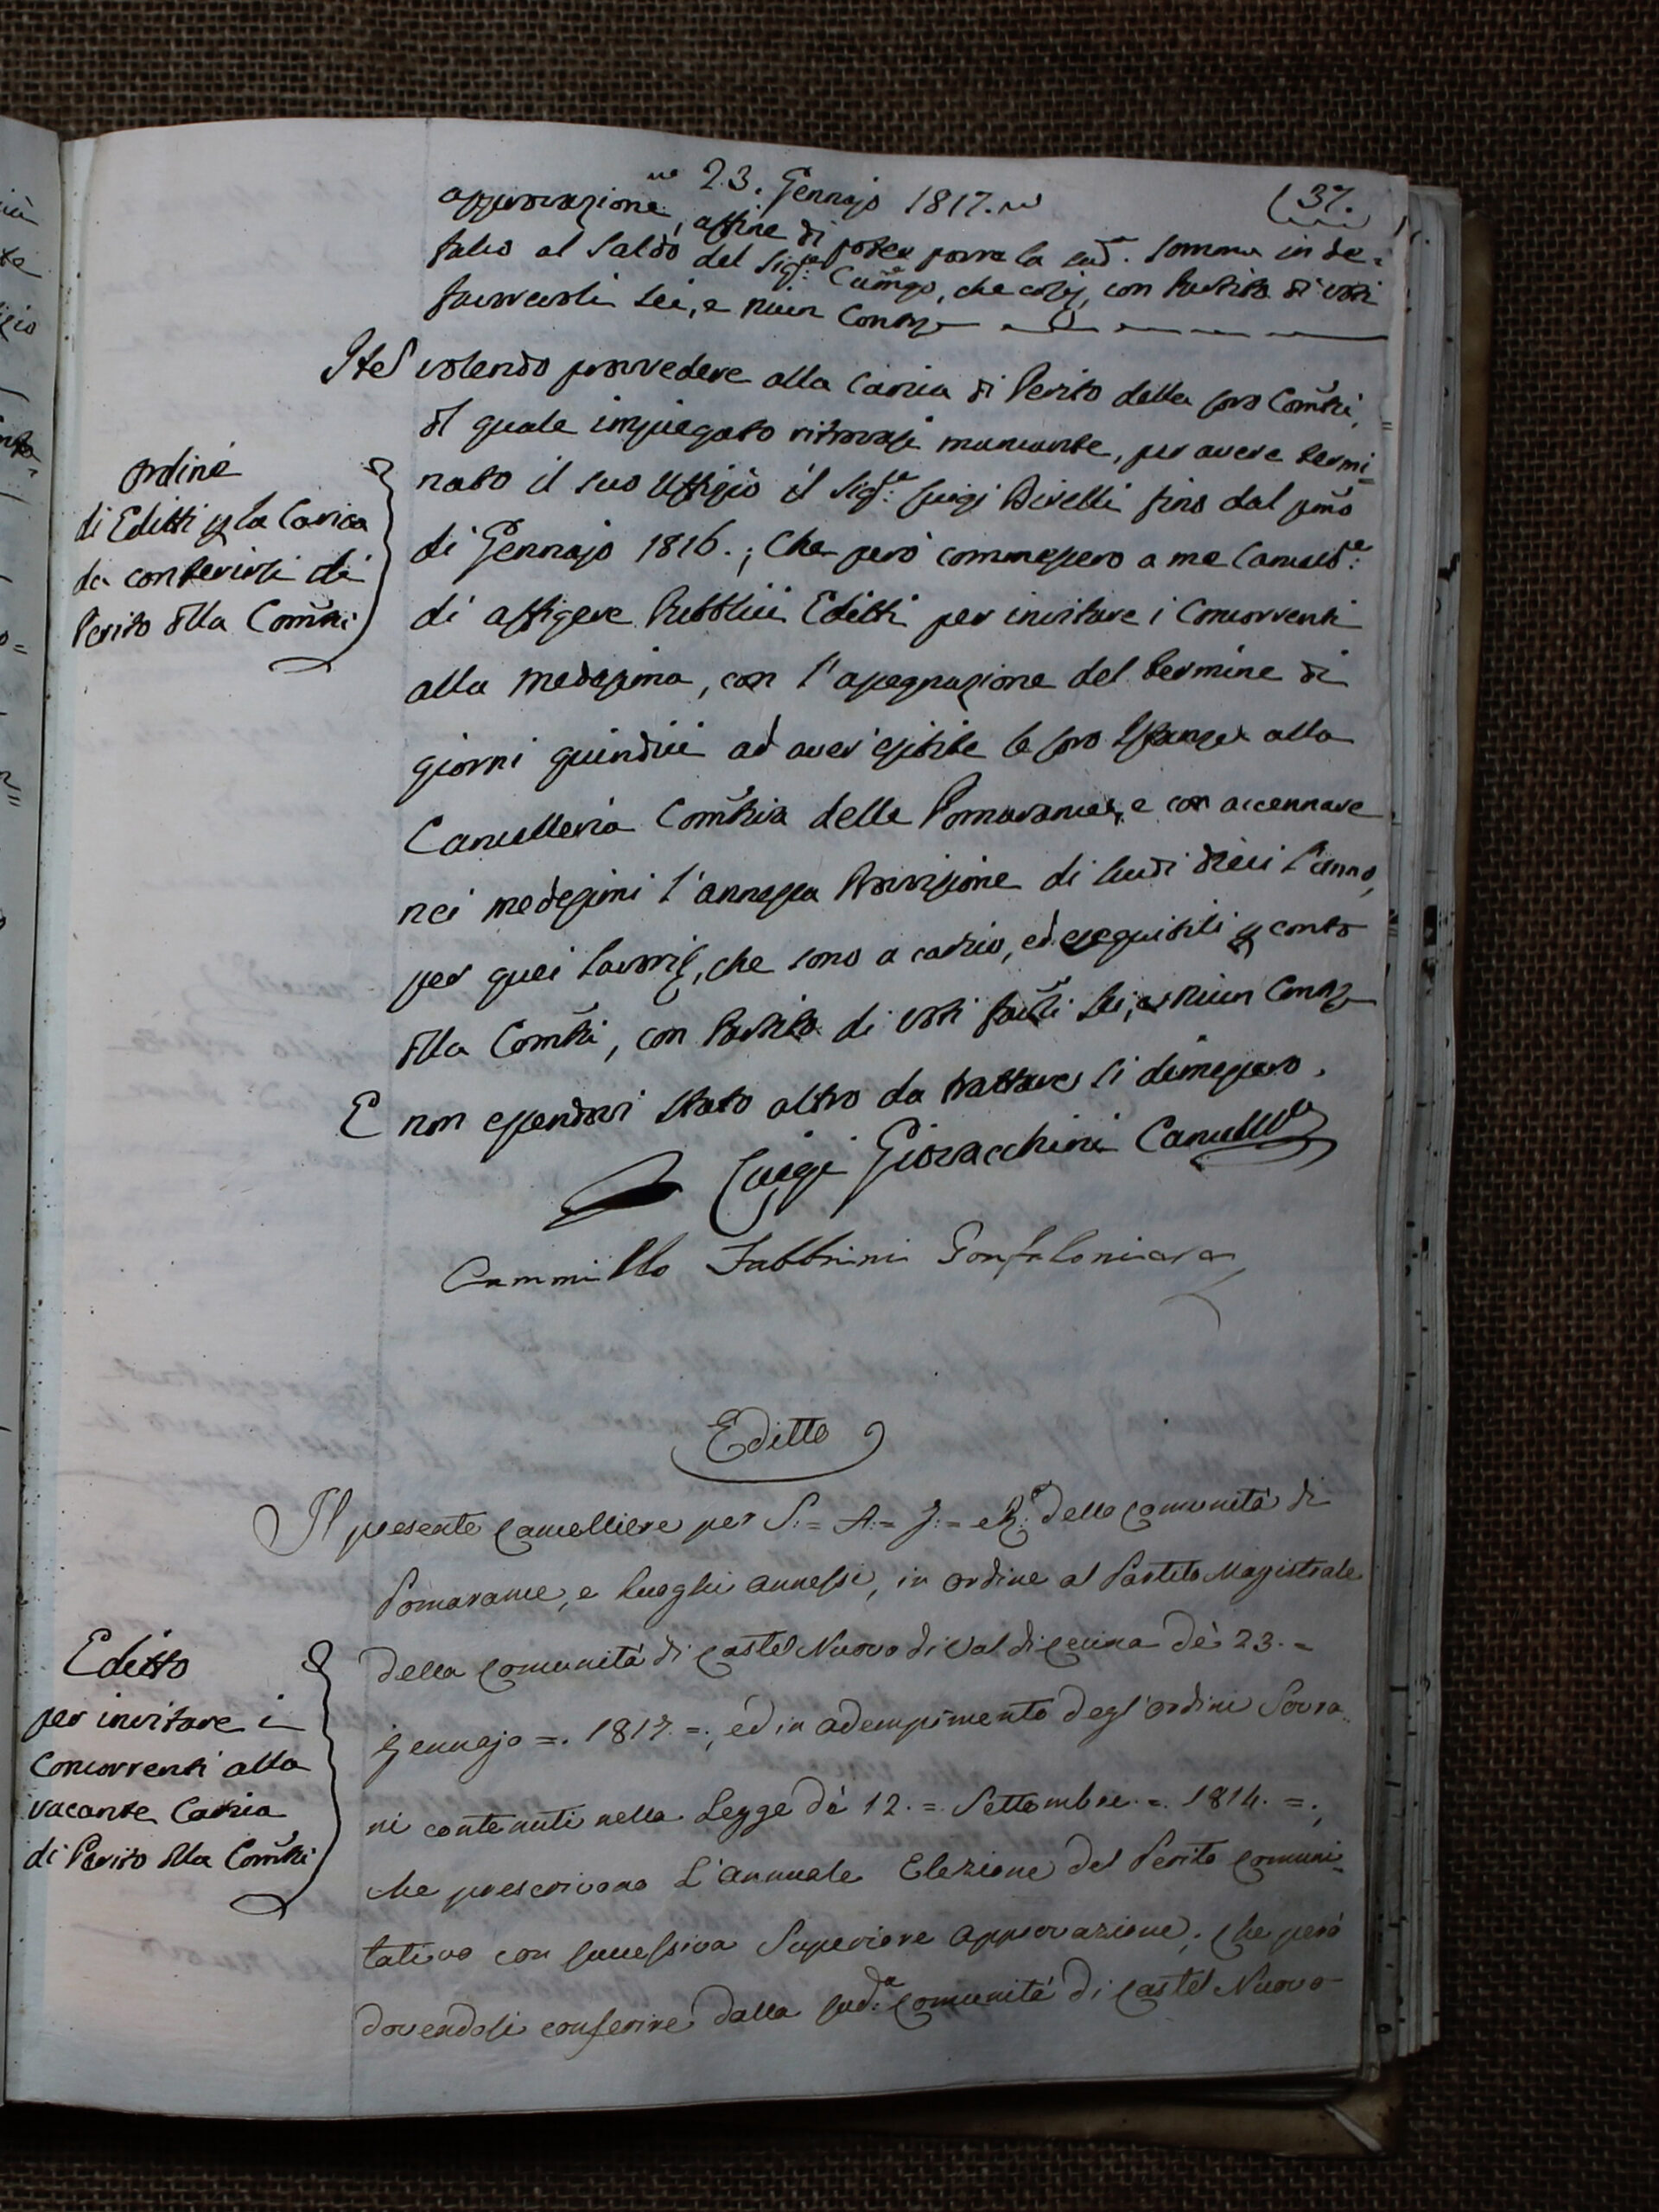 23. Gennajo 1817.
37.
approvazione, affine di poter porre la sud. somma in de=
falco al saldo del Sig.re Camgo, che così, con Partito di voti
favorevoli sei, e niun Contr.
Ite volendo provvedere alla Carica di Perito della loro Comtà,
il quale impiegato ritrovasi mancante, per avere termi=
nato il suo Uffizio il Sig.re Luigi Bivelli fino dal pmo
di Gennajo 1816.; Che però commessero a me Cancell.re
di affigere Pubblici Editti per invitare i Concorrenti
alla medesima, con l'assegnazione del termine di
giorni quindici ad aver' esibite le loro Istanze alla
Cancelleria Comtiva delle Pomarance, e con accennare
nei medesimi l'annessa Provvisione di scudi dieci l'anno,
per quei lavori, che sono a carico, ed eseguibili p conto
della Comtà, con Partito di voti favli sei, e niun Contr.
E non essendovi stato altro da trattare si dimessero.
Luigi Giovacchini Cancellre
Cammillo Fabbrini Gonfaloniere
ordine
di Editti p la Carica
da conferirsi di
Perito della Comtà
Editto
Il presente Cancelliere per S.= A.= I.= e R. delle Comunità di
Pomarance, e luoghi annessi, in ordine al Partito Magistrale
della Comunità di Castel Nuovo di Val di Cecina de' 23.=
Gennajo =. 1817. =; ed in adempimento degl'ordini Sovra=
ni contenuti nella Legge de' 12. =. Settembre. =. 1814. =.;
che prescrivono L'annuale Elezione del Perito Comuni=
tativo con successiva Superiore approvazione; Che però
dovendosi conferire dalla sud.a Comunità di Castel Nuovo
Editto
per invitare i
Concorrenti alla
vacante Carica
di Perito della Comtà